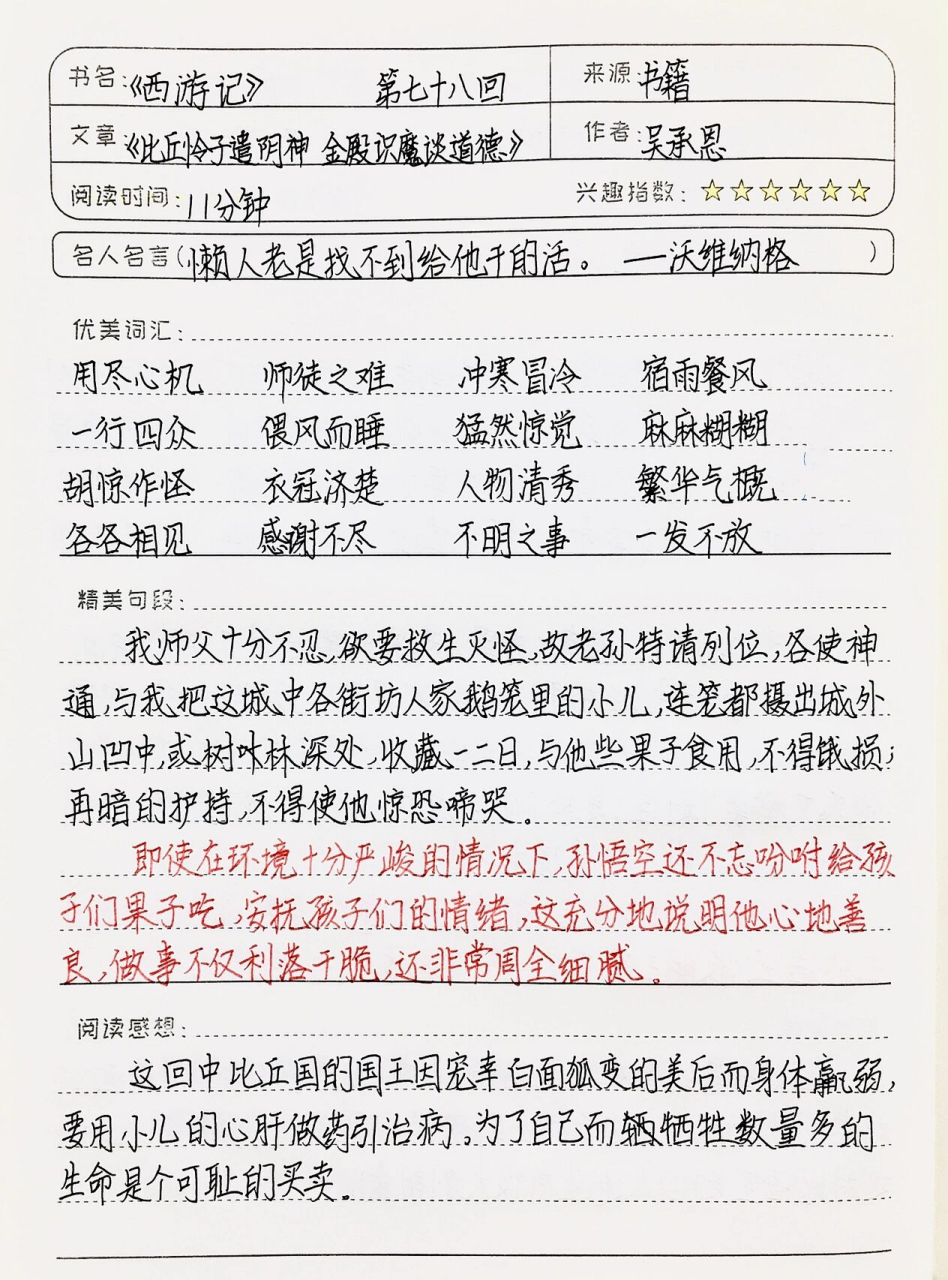 书名:《西游记》 第七十八回 来源:书籍
文章:《比丘怜子遣阴神 金殿识魔谈道德》 作者:吴承恩
阅读时间:11分钟 兴趣指数:☆☆☆☆☆☆
名人名言(懒人老是找不到给他干的活。 ——沃维纳格)
优美词汇:
用尽心机 师徒之难 冲寒冒冷 宿雨餐风
一行四众 偎风而睡 猛然惊觉 麻麻糊糊
胡惊作怪 衣冠济楚 人物清秀 繁华气概
各各相见 感谢不尽 不明之事 一发不放
精美句段:
我师父十分不忍,欲要救生灭怪,故老孙特请列位,各使神
通,与我把这城中各街坊人家鹅笼里的小儿,连笼都摄出城外
山凹中,或树林深处,收藏一二日,与他些果子食用,不得饿损;
再暗的护持,不得使他惊恐啼哭。
即使在环境十分严峻的情况下,孙悟空还不忘吩咐给孩
子们果子吃,安抚孩子们的情绪,这充分地说明他心地善
良,做事不仅利落干脆,还非常周全细腻。
阅读感想:
这回中比丘国的国王因宠幸白面狐变的美后而身体羸弱,
要用小儿的心肝做药引治病。为了自己而牺牲数量多的
生命是个可耻的买卖。